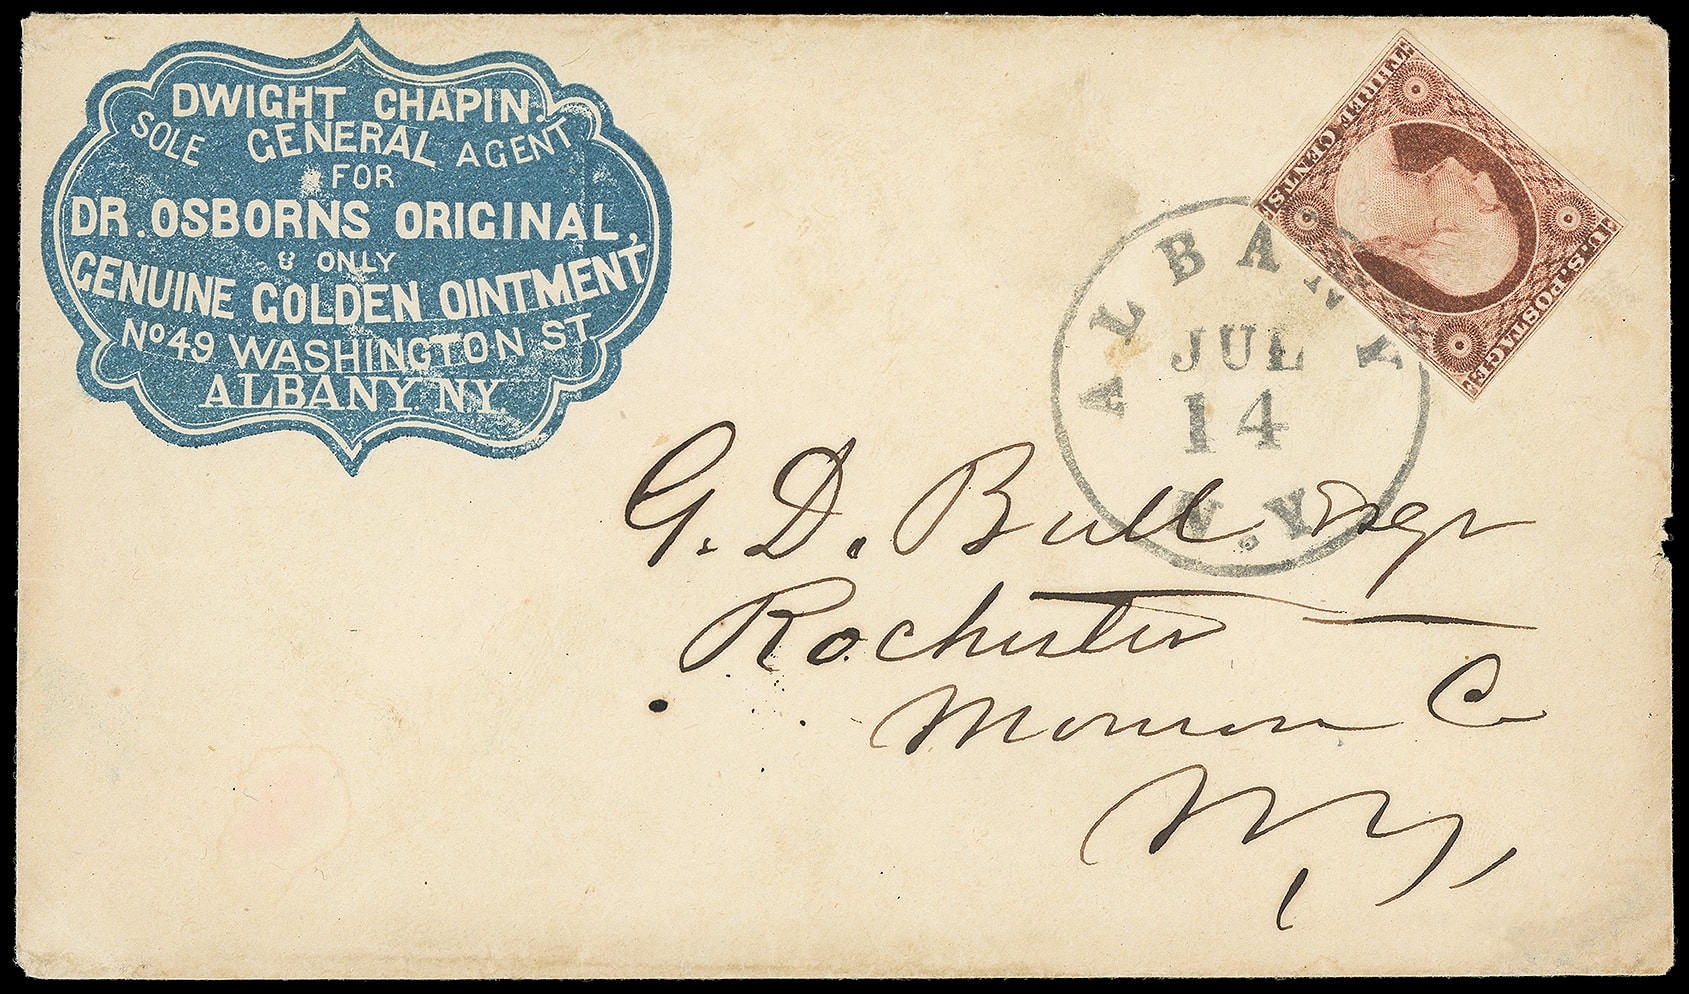 DWIGHT CHAPIN.
SOLE GENERAL AGENT
FOR
DR. OSBORNS ORIGINAL,
& ONLY
GENUINE GOLDEN OINTMENT
No 49 WASHINGTON ST
ALBANY. NY
THREE CENTS
U.S. POSTAGE
ALBANY
JUL
14
N.Y
G. D. Bull Esqr
Rochester
Monroe Co
N.Y,